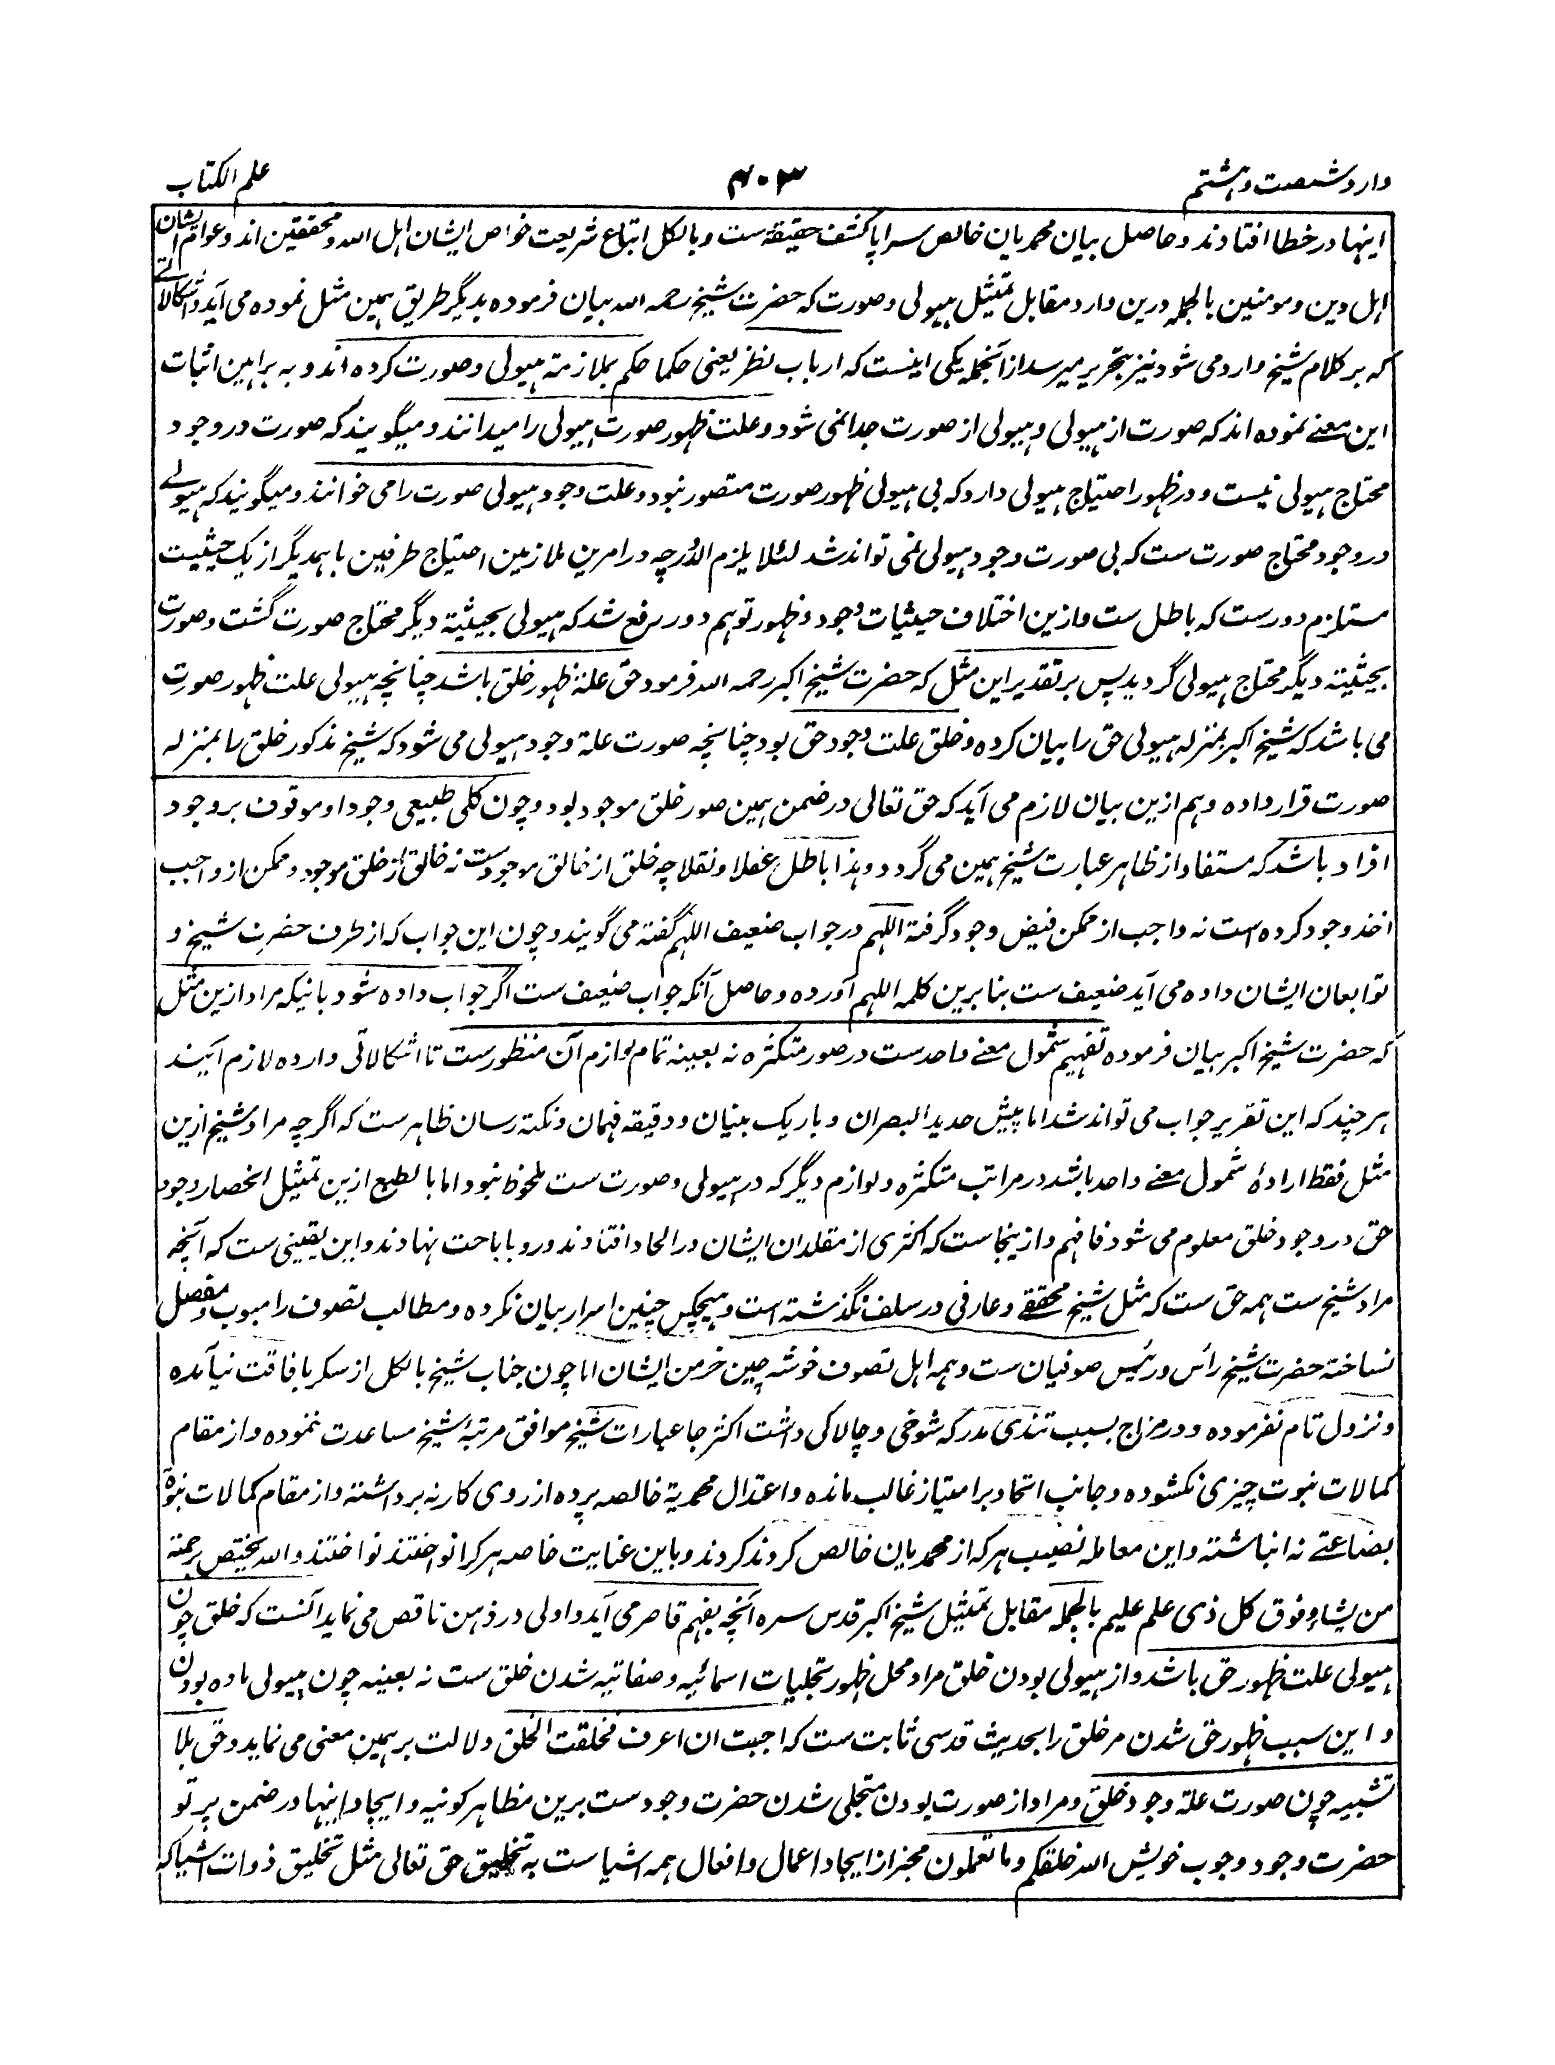 وارد شصت و هشتم
۴۰۳
علم الکتاب
اینها در خطا افتادند و حاصل بیان محمدیان خالص سراپا کشف حقیقة ست و بالکل اتباع شریعت خواص ایشان اہل اللہ و محققین اند و عوام ایشان
اہل دین و مومنین بالجملہ درین وارد مقابل تمثیل ہیولی و صورت کہ حضرت شیخ رحمہ اللہ بیان فرمودہ بدیگر طریق ہمین مثل نمودہ می آید و اشکالاتے
کہ بر کلام شیخ وارد می شود نیز بتحریر میرسد از آنجملہ یکی اینست کہ ارباب نظر یعنی حکما حکم بملازمة ہیولی و صورت کردہ اند و بہ براہین اثبات
این معنے نمودہ اند کہ صورت از ہیولی و ہیولی از صورت جدا نمی شود و علت ظہور صورت ہیولی را میدانند و میگویند کہ صورت در وجود
محتاج ہیولی نیست و در ظہور احتیاج ہیولی دارد کہ بی ہیولی ظہور صورت متصور نبود و علت وجود ہیولی صورت را می خوانند و میگویند کہ ہیولے
در وجود محتاج صورت ست کہ بی صورت وجود ہیولی نمی تواند شد لئلا یلزم الدور چہ در امرین ملازمین احتیاج طرفین با ہمدیگر از یک حیثیت
مستلزم دور ست کہ باطل ست و ازین اختلاف حیثیات وجود و ظہور توہم دور رفع شد کہ ہیولی بحیثیة دیگر محتاج صورت گشت و صورت
بحیثیة دیگر محتاج ہیولی گردید پس بر تقدیر این مثل کہ حضرت شیخ اکبر رحمہ اللہ فرمود حق علة ظہور خلق باشد چنانچہ ہیولی علت ظہور صورت
می باشد کہ شیخ اکبر بمنزلہ ہیولی حق را بیان کردہ و خلق علت وجود حق بود چنانچہ صورت علة وجود ہیولی می شود کہ شیخ مذکور خلق را بمنزلہ
صورت قرار دادہ و ہم ازین بیان لازم می آید کہ حق تعالی در ضمن ہمین صور خلق موجود بود و چون کلی طبیعی وجود او موقوف بر وجود
افراد باشد کہ مستفاد از ظاہر عبارت شیخ ہمین می گردد و ہذا باطل عقلا و نقلا چہ خلق از خالق موجود ست نہ خالق از خلق موجود و ممکن از واجب
اخذ وجود کردہ است نہ واجب از ممکن فیض وجود گرفتہ اللہم در جواب ضعیف اللہم گفتہ می گویند و چون این جواب کہ از طرف حضرت شیخ و
توابعان ایشان دادہ می آید ضعیف ست بنا برین کلمہ اللہم آوردہ و حاصل آنکہ جواب ضعیف ست اگر جواب دادہ شود بانیکہ مراد ازین مثل
کہ حضرت شیخ اکبر بیان فرمودہ تفہیم شمول معنے واحد ست در صور متکثرہ نہ بعینہ تمام لوازم آن منظور ست تا اشکالاتی واردہ لازم آیند
ہر چند کہ این تقریر جواب می تواند شد اما پیش حدید البصران و باریک بینان و دقیقہ فہمان و نکتہ رسان ظاہر ست کہ اگرچہ مراد شیخ ازین
مثل فقط ارادۂ شمول معنے واحد باشد در مراتب متکثرہ و لوازم دیگر کہ در ہیولی و صورت ست ملحوظ نبود اما بالطبع ازین تمثیل انحصار وجود
حق در وجود خلق معلوم می شود فافہم و ازینجاست کہ اکثری از مقلدان ایشان در الحاد افتادند و رو باباحت نہادند و این یقینی ست کہ آنچہ
مراد شیخ ست ہمہ حق ست کہ مثل شیخ محققے و عارفی در سلف نگذشتہ است و ہیچکس چنین اسرار بیان نکردہ و مطالب تصوف را مبوب و مفصل
نساختہ حضرت شیخ رأس و رئیس صوفیان ست و ہمہ اہل تصوف خوشہ چین خرمن ایشان اما چون جناب شیخ بالکل از سکر بافاقت نیامدہ
و نزول تام نفرمودہ و در مزاج بسبب تندی مدرکہ شوخی و چالاکی داشت اکثر جا عبارات شیخ موافق مرتبۂ شیخ مساعدت ننمودہ و از مقام
کمالات نبوت چیزی نکشودہ و جانب اتحاد بر امتیاز غالب ماندہ و اعتدال محمدیة خالصہ پردہ از روی کار نہ برداشتہ و از مقام کمالات نبوة
بضاعتے نہ انباشتہ و این معاملہ نصیب ہر کہ از محمدیان خالص کردند کردند و باین عنایت خاصہ ہر کرا نواختند نواختند و اللہ یختص برحمتہ
من یشاء و فوق کل ذی علم علیم بالجملہ مقابل تمثیل شیخ اکبر قدس سرہ آنچہ بفہم قاصر می آید و اولی در ذہن ناقص می نماید آنست کہ خلق چون
ہیولی علت ظہور حق باشد و از ہیولی بودن خلق مراد محل ظہور تجلیات اسمائیہ و صفاتیہ شدن خلق ست نہ بعینہ چون ہیولی مادہ بودن
و این سبب ظہور حق شدن مر خلق را بحدیث قدسی ثابت ست کہ احببت ان اعرف فخلقت الخلق دلالت بر ہمین معنی می نماید و حق بلا
تشبیہ چون صورت علة وجود خلق و مراد از صورت بودن متجلی شدن حضرت وجود ست برین مظاہر کونیہ و ایجاد اینہا در ضمن پرتو
حضرت وجود وجوب خویش اللہ خلقکم و ما تعملون مخبر از ایجاد اعمال و افعال ہمہ اشیاست بہ تخلیق حق تعالی مثل تخلیق ذوات اشیا کہ